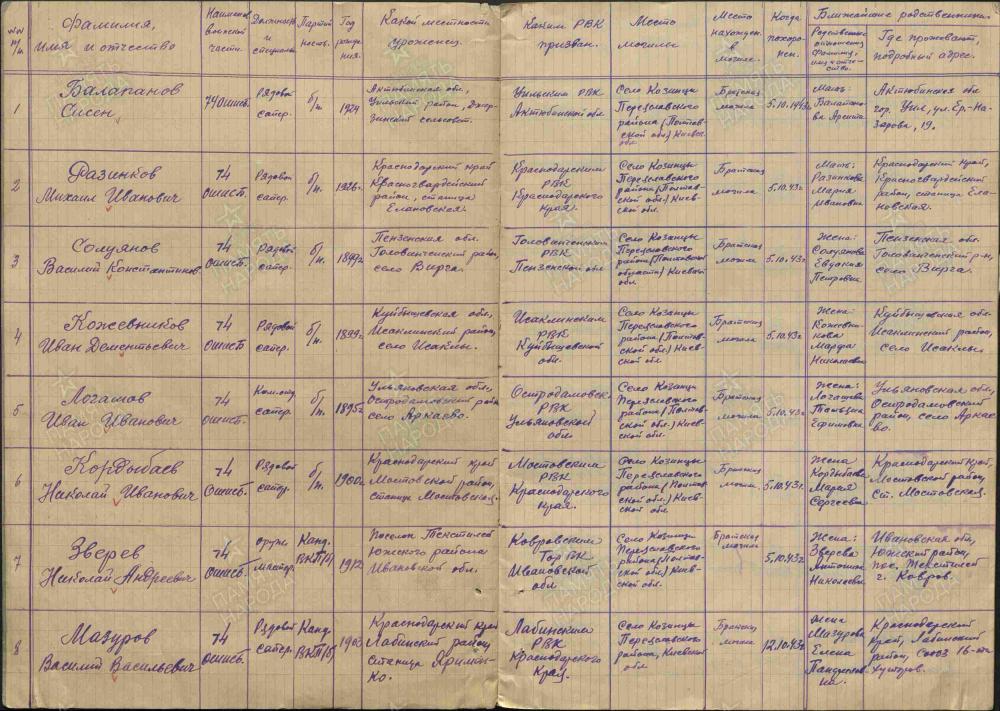 №№ п/п
Фамилия,
имя и отчество
Наименов.
воинской
части.
Должность
и
специальн.
Партий-
ность.
Год
рожде-
ния.
Какой местности
уроженец.
Каким РВК
призван.
Место
могилы
Место
нахожден.
в
могиле.
Когда
похоро-
нен.
Ближайшие родственники.
Родственные
отношения
фамилия,
имя и отче-
ство.
Где проживают,
подробный адрес.
1
Балапанов
Сисен
74 ошисб.
Рядовой
сапер.
б/п.
1924
Актюбинская обл,
Уильский район,
сельсовет.
Уильским РВК
Актюбинской обл
Село Козинцы
Переяславского
района (Полтав-
ской обл) Киевс.
обл
Братская
могила
5.10.1943г
Мать:
Балапано-
ва
Актюбинская обл
гор. Уил, ул. Ер-На-
зарова, 19.
2
Разинков
Михаил Иванович
74
ошисб.
Рядовой
сапер.
б/п.
1926г.
Краснодарский край
Красногвардейский
район, станица
Елановская.
Красногвардейским
РВК
Краснодарского
края.
Село Козинцы
Переяславского
района (Полтав-
ской обл.) Киев-
ской обл.
Братская
могила
5.10.43г
Мать:
Разинкова
Мария
Ивановна
Краснодарский край,
Красногвардейский
район, станица Ела-
новская.
3
Солуянов
Василий Константинов.
74
ошисб.
Рядовой
сапер.
б/п.
1899г
Пензенская обл.
Головинщенский район,
село Вирга.
Головинщенским
РВК
Пензенской обл
Село Козинцы
Переяславского
района (Полтавской
области) Киевской
обл
Братская
могила
5.10.43г
Жена:
Солуянова
Евдокия
Петровна
Пензенская обл.
Головинщенский р-н,
село Вирга.
4
Кожевников
Иван Дементьевич
74
ошисб.
Рядовой
сапер.
б/п.
1899г
Куйбышевская обл,
Исаклинский район,
село Исаклы.
Исаклинским
РВК
Куйбышевской
обл.
Село Козинцы
Переяславского
района (Полтав-
ской обл.) Киев-
ской обл
Братская
могила
5.10.43г
Жена:
Кожевни-
кова
Марфа
Николаевна
Куйбышевская обл.
Исаклинский район,
село Исаклы.
5
Логашов
Иван Иванович
74
ошисб.
Ком.отд
сапер.
б/п.
1895г
Ульяновская обл,
Астрадамовский район
село Аркаево.
Астрадамовским
РВК
Ульяновской
обл
Село Козинцы
Переяславского
района (Полтав-
ской обл.) Киев-
ской обл
Братская
могила
5.10.43г
Жена:
Логашова
Татьяна
Ефимовна
Ульяновская обл,
Астрадамовский
район, село Аркае-
во.
6
Кордыбаев
Николай Иванович
74
ошисб.
Рядовой
сапер.
б/п.
1900г
Краснодарский край
Мостовской район,
станица Мостовская.
Мостовским
РВК
Краснодарского
края.
Село Козинцы
Переяславского
района (Полтав-
ской обл.) Киев-
ской обл
Братская
могила
5.10.43г
Жена
Кордыбаева
Мария
Сергеевна
Краснодарский край,
Мостовской район,
ст. Мостовская.
7
Зверев
Николай Андреевич
74
ошисб.
оруж.
мастер.
Канд.
ВКП(б)
1912
Поселок Текстилей
Южского района
Ивановской обл.
Ковровским
Гор РВК
Ивановской
обл
Село Козинцы
Переяславского
района (Полтав-
ской обл) Киев-
ской обл.
Братская
могила
5.10.43г
Жена:
Зверева
Антонина
Николаевна
Ивановская обл,
Южский район,
пос. Текстилей
г. Ковров.
8
Мазуров
Василий Васильевич
74
ошисб.
Рядовой
сапер.
Канд.
ВКП(б)
1903
Краснодарский край
Лабинский район,
станица
Лабинским
РВК
Краснодарского
края.
Село Козинцы
Переяславского
района, Киевской
обл
Братская
могила
12.10.43г
Жена
Мазурова
Елена
Краснодарский
край, Лабинский
район, Союз 16-ти
хуторов.
ПАМЯТЬ
НАРОДА